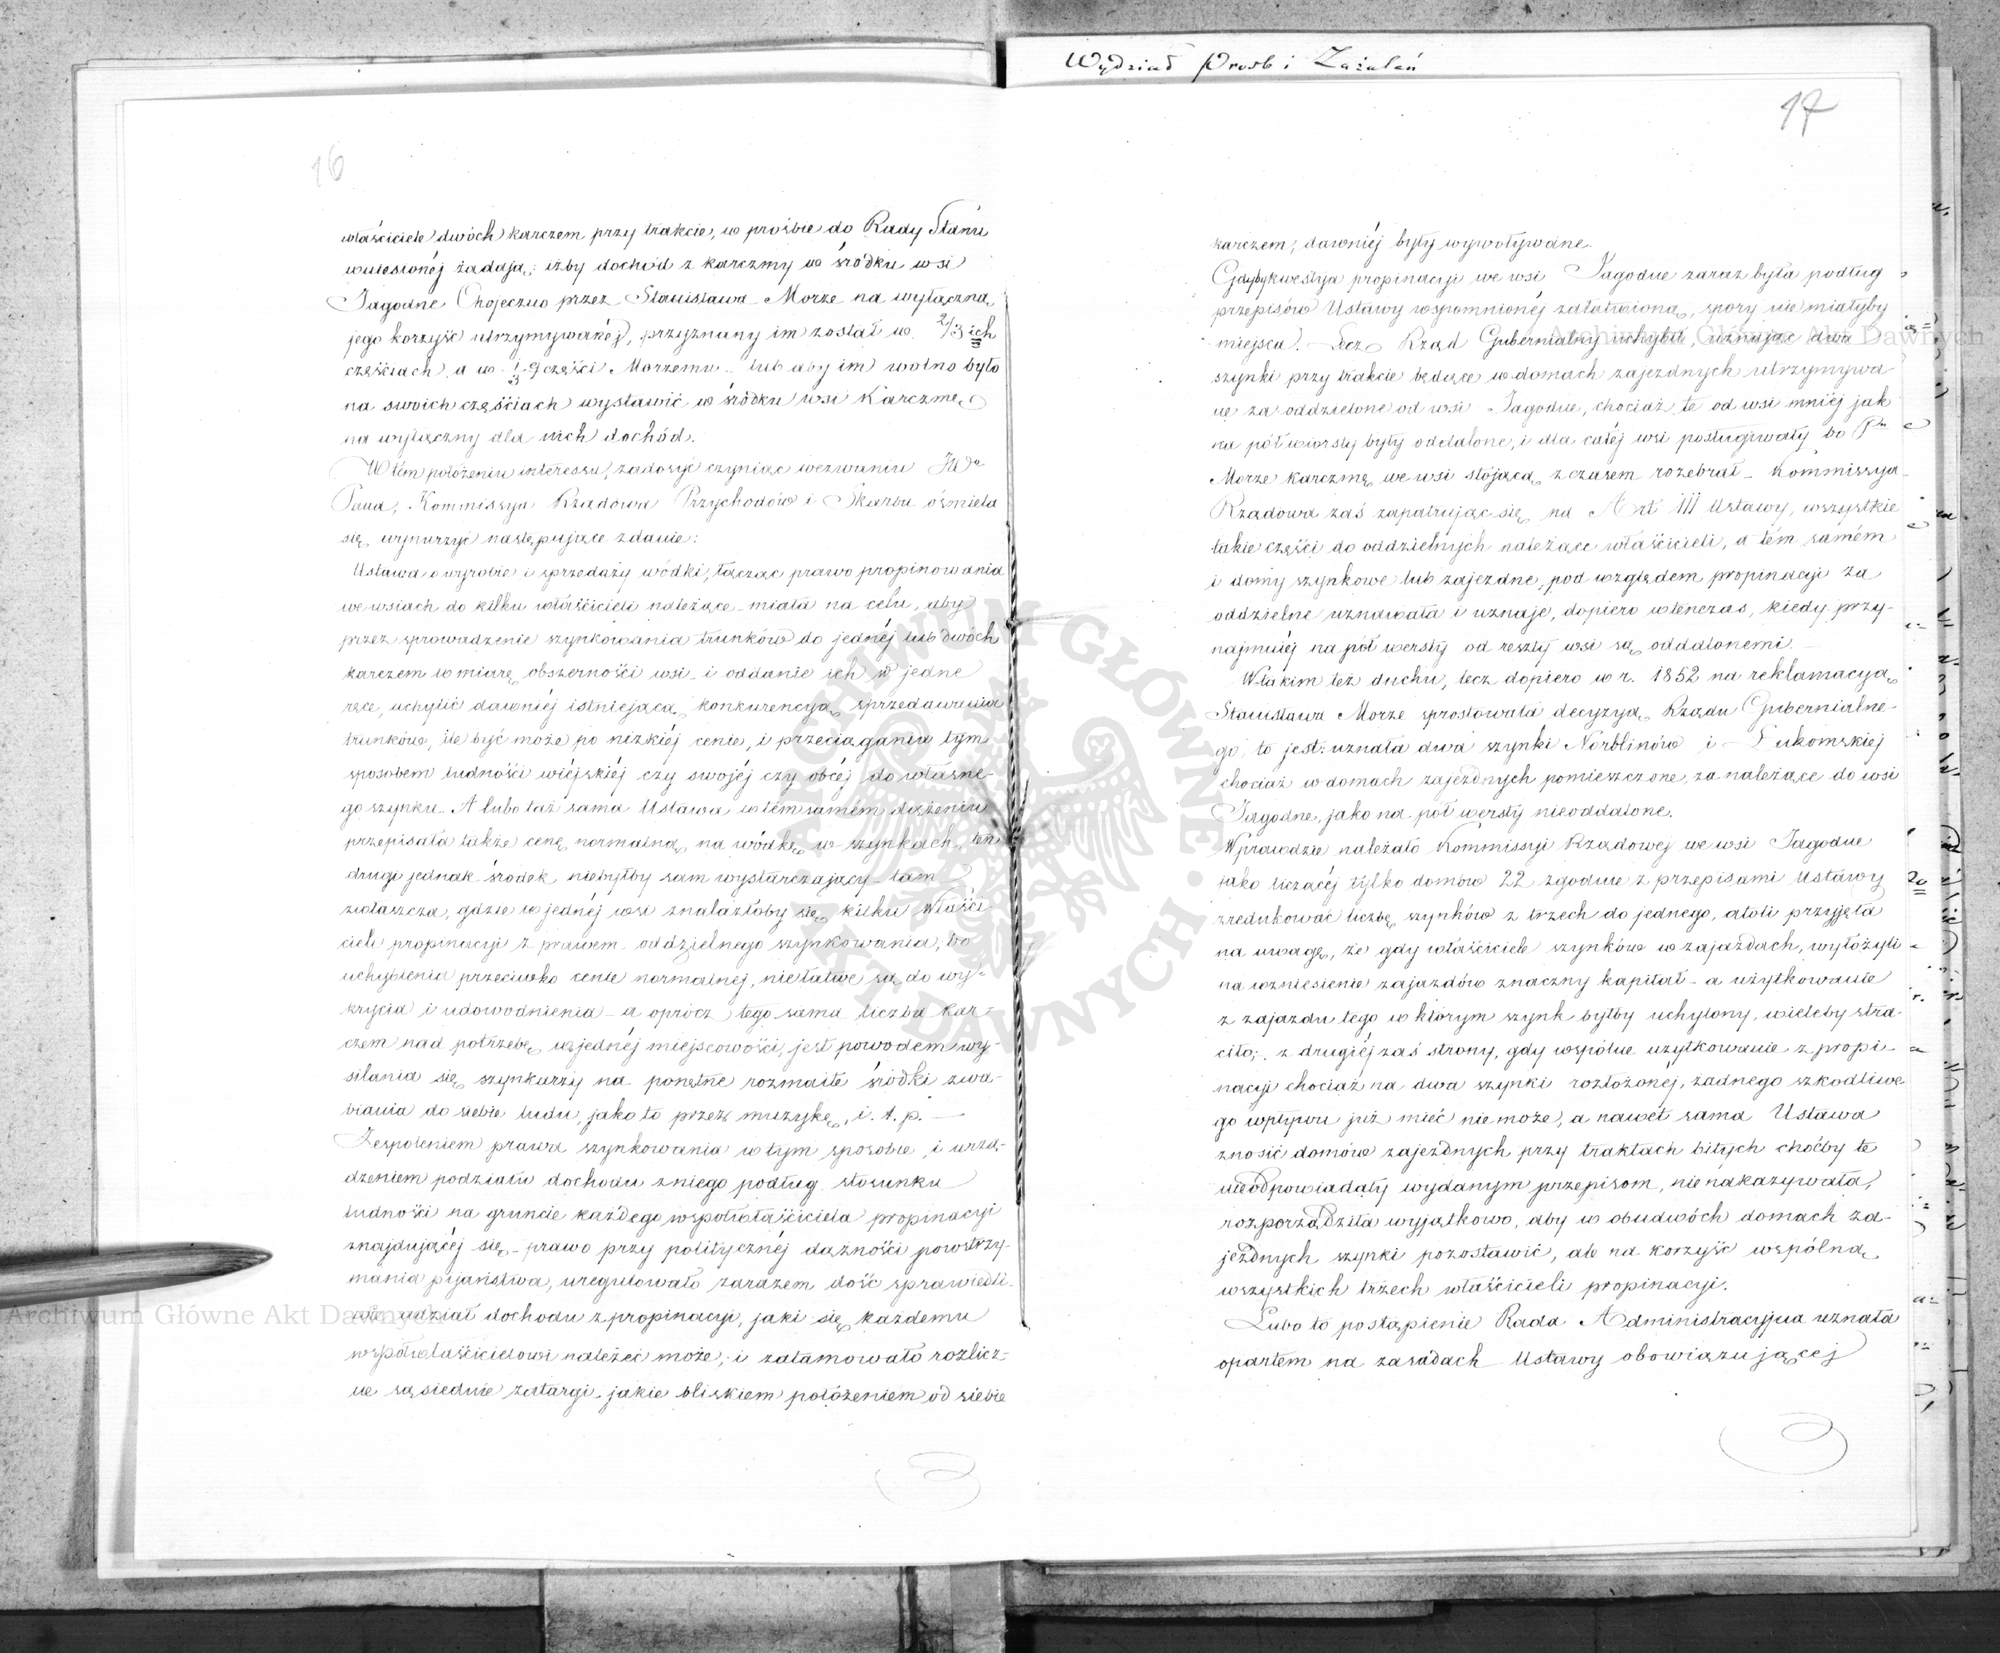 Wydział Prośb i Zażaleń
16
właściciele dwóch karczem przy trakcie, w prośbie do Rady Stanu
wniesionéj żądają, iżby dochód z karczmy w środku wsi
Jagodne Chojeczno przez Stanisława Morze na wyłączną
jego korzyść utrzymywanéj, przyznany im został w 2/3 ich
częściach a w 1/3 części Morzemu lub aby im wolno było
na swoich częściach wystawić w środku wsi Karczmę
na wyłączny dla nich dochód.
W tém położeniu interessu, zadosyć czyniąc wezwaniu JWo
Pana, Kommissya Rządowa Przychodów i Skarbu ośmiela
się wynurzyć następujące zdanie:
Ustawa o wyrobie i sprzedaży wódki, łącząc prawo propinowania
we wsiach do kilku właścicieli należące miała na celu, aby
przez sprowadzenie szynkowania trunków do jednéj lub dwóch
karczem w miarę obszerności wsi i oddanie ich w jedne
ręce, uchylić dawniéj istniejącą konkurencyą sprzedawania
trunków, ile być może po nizkiéj cenie, i przeciągania tym
sposobem ludności wiéjskiéj czy swojéj czy obcéj do własne-
go szynku. A lubo taż sama Ustawa w tém samém dążeniu
przepisała także cenę normalną na wódkę w szynkach, ten
drugi jednak środek niebyłby sam wystarczający tam
zwłaszcza, gdzie w jednéj wsi znalazłoby się kilku Właści
cieli propinacyi z prawem oddzielnego szynkowania, bo
uchybienia przeciwko cenie normalnej, niełatwe są do wy-
krycia i udowodnienia a oprócz tego sama liczba kar-
czem nad potrzebę w jednéj miejscowości, jest powodem wy-
silania się szynkarzy na ponętne rozmaite środki zwa-
biania do siebie ludu, jako to przez muzykę, i. t. p.
Zespoleniem prawa szynkowania w tym sposobie, i urzą-
dzeniem podziału dochodu z niego podług stosunku
ludności na gruncie każdego współwłaściciela propinacyi
znajdującéj się prawo przy politycznéj dążności powstrzy-
mania pijaństwa, uregulowało zarazem dość sprawiedli-
wie udział dochodu z propinacyi, jaki się każdemu
współwłaścicielowi należeć może, i zatamowało rozlicz-
ne sąsiednie zatargi jakie bliskiem położeniem od siebie
17
karczem, dawniéj były wywoływane.
Gdyby kwestya propinacyi we wsi Jagodne zaraz była podług
przepisów Ustawy wspomnionéj załatwioną, spory nie miałyby
miejsca. Lecz Rząd Gubernialny uchybił, uznając dwa
szynki przy trakcie będące w domach zajezdnych utrzymywa
ne za oddzielone od wsi Jagodne, chociaż te od wsi mniéj jak
na pół wiorsty były oddalone, i dla całéj wsi posługiwały bo Pn
Morze karczmę we wsi stójącą z czasem rozebrał. Kommissya
Rządowa zaś zapatrując się na Art III Ustawy, wszystkie
takie części do oddzielnych należące właścicieli, a tém samém
i domy szynkowe lub zajezdne, pod względem propinacyi za
oddzielne uznawała i uznaje, dopiero wtenczas, kiedy przy-
najmniéj na pół wersty od reszty wsi są oddalonemi.
W takim też duchu, lecz dopiero w r. 1852 na reklamacyą
Stanisława Morze sprostowała decyzyą Rządu Gubernialne-
go, to jest: uznała dwa szynki Norblinów i Łukomskiej
chociaż w domach zajezdnych pomieszczone, za należące do wsi
Jagodne, jako na pół wersty nieoddalone.
Wprawdzie należało Kommissyi Rządowej we wsi Jagodne
jako liczącéj tylko domów 22 zgodnie z przepisami Ustawy
zredukować liczbę szynków z trzech do jednego, atoli przyjęła
na uwagę, że gdy właściciele szynków w zajazdach, wyłożyli
na wzniesienie zajazdów znaczny kapitał a użytkowanie
z zajazdu tego w którym szynk byłby uchylony, wieleby stra
ciło; z drugiéj zaś strony, gdy wspólne użytkowanie z propi-
nacyi chociaż na dwa szynki rozłożonej, żadnego szkodliwe
go wpływu już mieć nie może, a nawet sama Ustawa
znosić domów zajezdnych przy traktach bitych choćby te
nieodpowiadały wydanym przepisom, nienakazywała,
rozporządziła wyjątkowo, aby w obudwóch domach za-
jezdnych szynki pozostawić, ale na korzyść wspólną
wszystkich trzech właścicieli propinacyi.
Lubo to postąpienie Rada Administracyjna uznała
opartem na zasadach Ustawy obowiązującej
Archiwum Główne Akt Dawnych
Archiwum Główne Akt Dawnych
ARCHIWUM GŁÓWNE AKT DAWNYCH